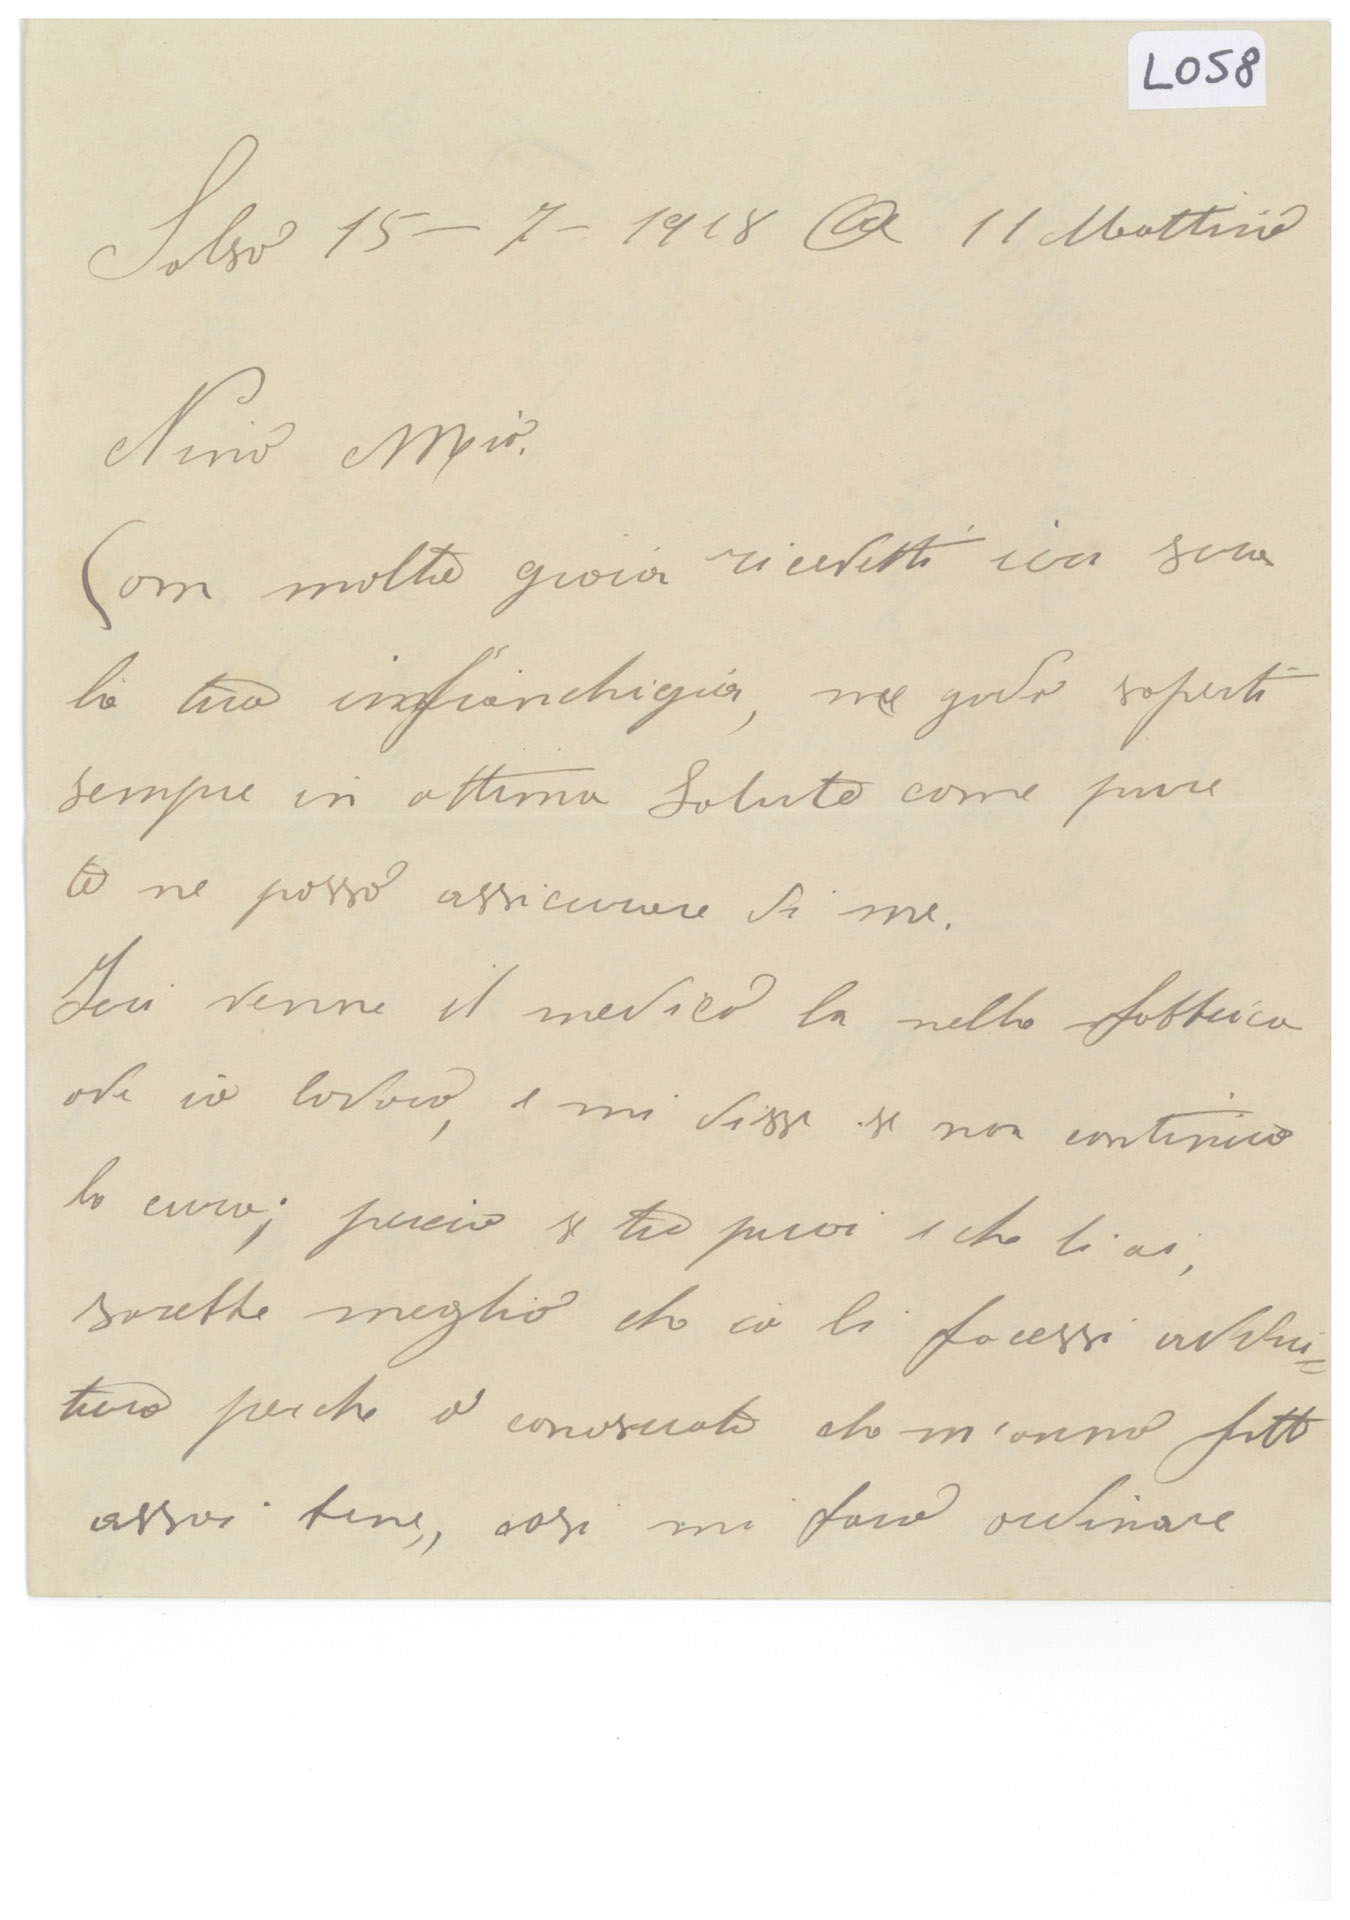 L058
Salso 15 - 7 - 1918 Ore 11 Mattino
Nino Mio.
Com molta gioia ricevetti ieri sera
la tua infranchigia, ne godo saperti
sempre in ottima Salute come pure
te ne posso assicurare di me.
Ieri venne il medico la nella fabbrica
ove io lavoro, e mi disse se non continuo
la cura; percio se tu puoi e che li ai,
sarebbe meglio che io li facessi addiri=
tura perche o' conosciuto che m'anno fatto
assai bene, cosi mi farò ordinare